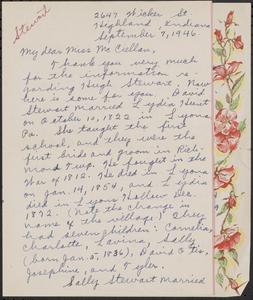 Stewart
2647 Wicker St.
Highland, Indiana
September 7, 1946.
My dear Miss McCullen,
Thank you very much
for the information re-
garding Hugh Stewart. Now
here is some for you. David
Stewart married Lydia Hurst
on October 10, 1822 in Lyons,
Pa. She taught the first
school, and they was the
first bride and groom in Rich-
mond Twp. He fought in the
War of 1812. He died in Lyons
on Jan. 14, 1854, and Lydia
died in Lyons Hollow Dec.
1872. (Note the change in
name of the village) They
had seven children: Cornelia,
Charlotte, Lavina, Sally
(born Jan. 5, 1836), David Otis,
Josephine, and Tyler.
Sally Stewart married